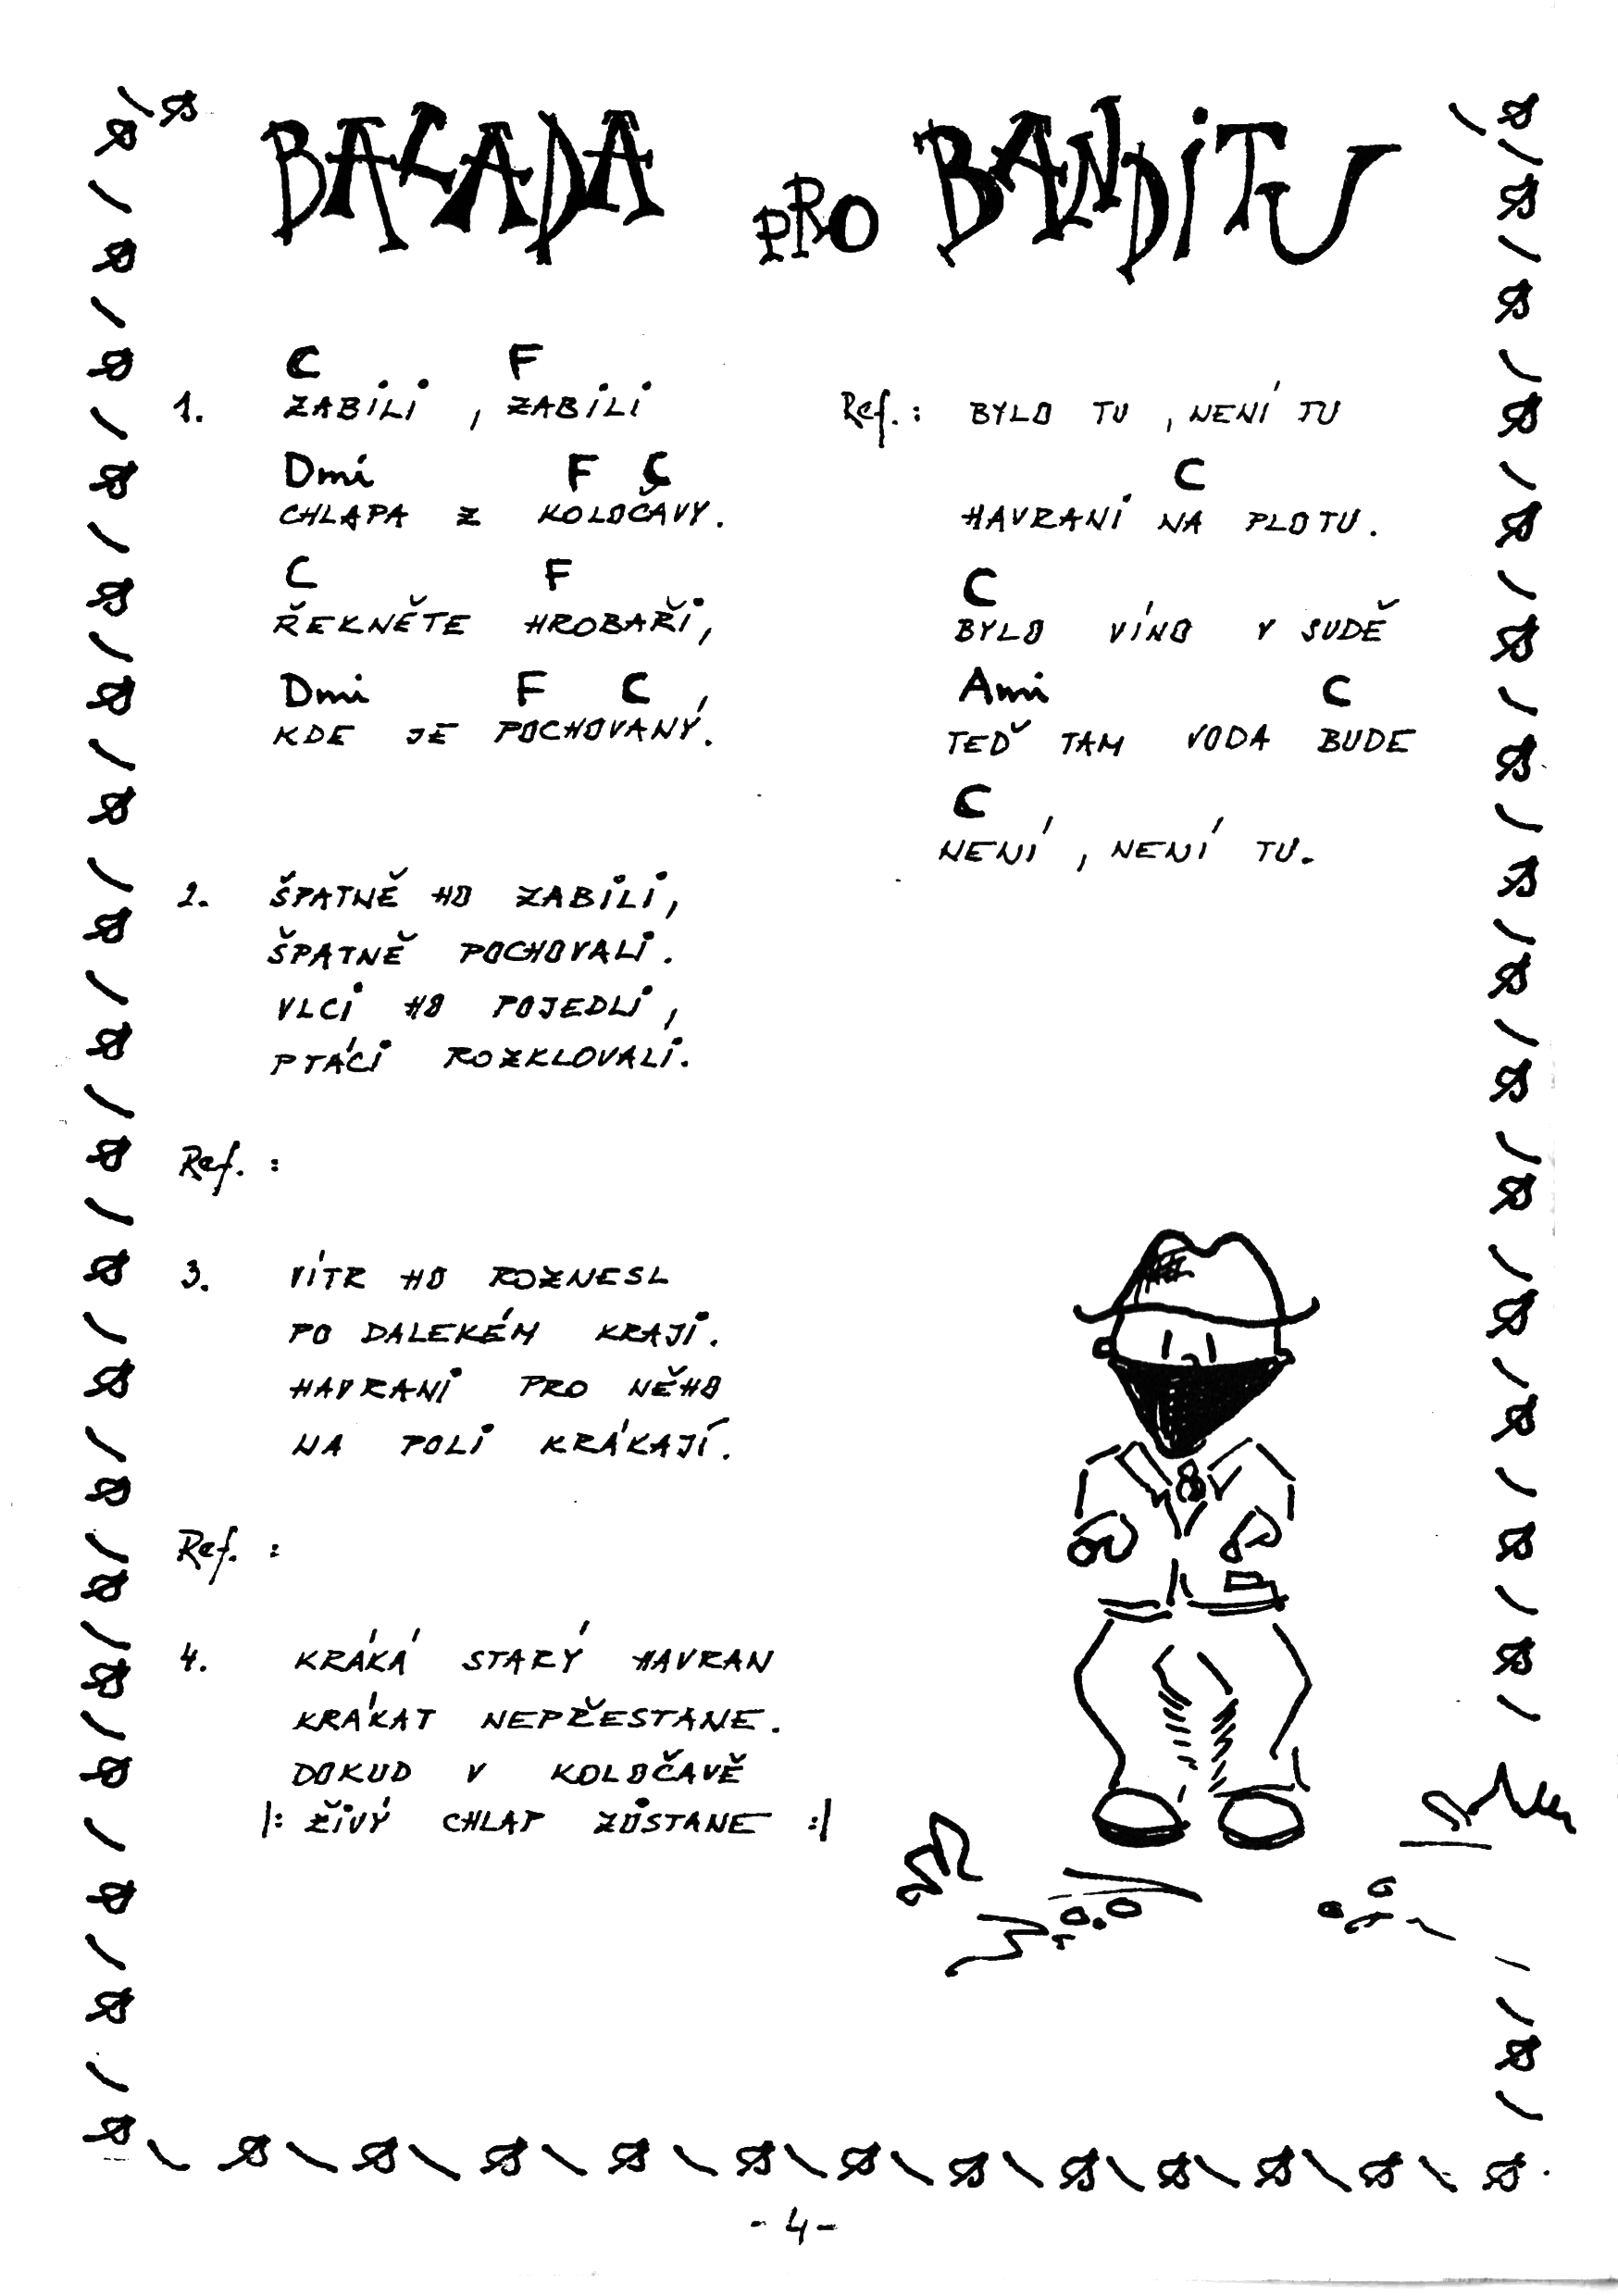 BALADA PRO BANDITU
C F
1. ZABILI, ZABILI
Dmi F C
CHLAPA Z KOLOČAVY.
C F
ŘEKNĚTE HROBAŘI,
Dmi F C
KDE JE POCHOVANÝ.
2. ŠPATNĚ HO ZABILI,
ŠPATNĚ POCHOVALI.
VLCI HO POJEDLI,
PTÁCI ROZKLOVALI.
Ref.:
3. VÍTR HO ROZNESL
PO DALEKÉM KRAJI.
HAVRANI PRO NĚHO
NA POLI KRÁKAJÍ.
Ref.:
4. KRÁKÁ STARÝ HAVRAN
KRÁKAT NEPŘESTANE.
DOKUD V KOLOČAVĚ
|: ŽIVÝ CHLAP ZŮSTANE :|
Ref.: BYLO TU, NENÍ TU
C
HAVRANI NA PLOTU.
C
BYLO VÍNO V SUDĚ
Ami C
TEĎ TAM VODA BUDE
C
NENÍ, NENÍ TU.
- 4 -